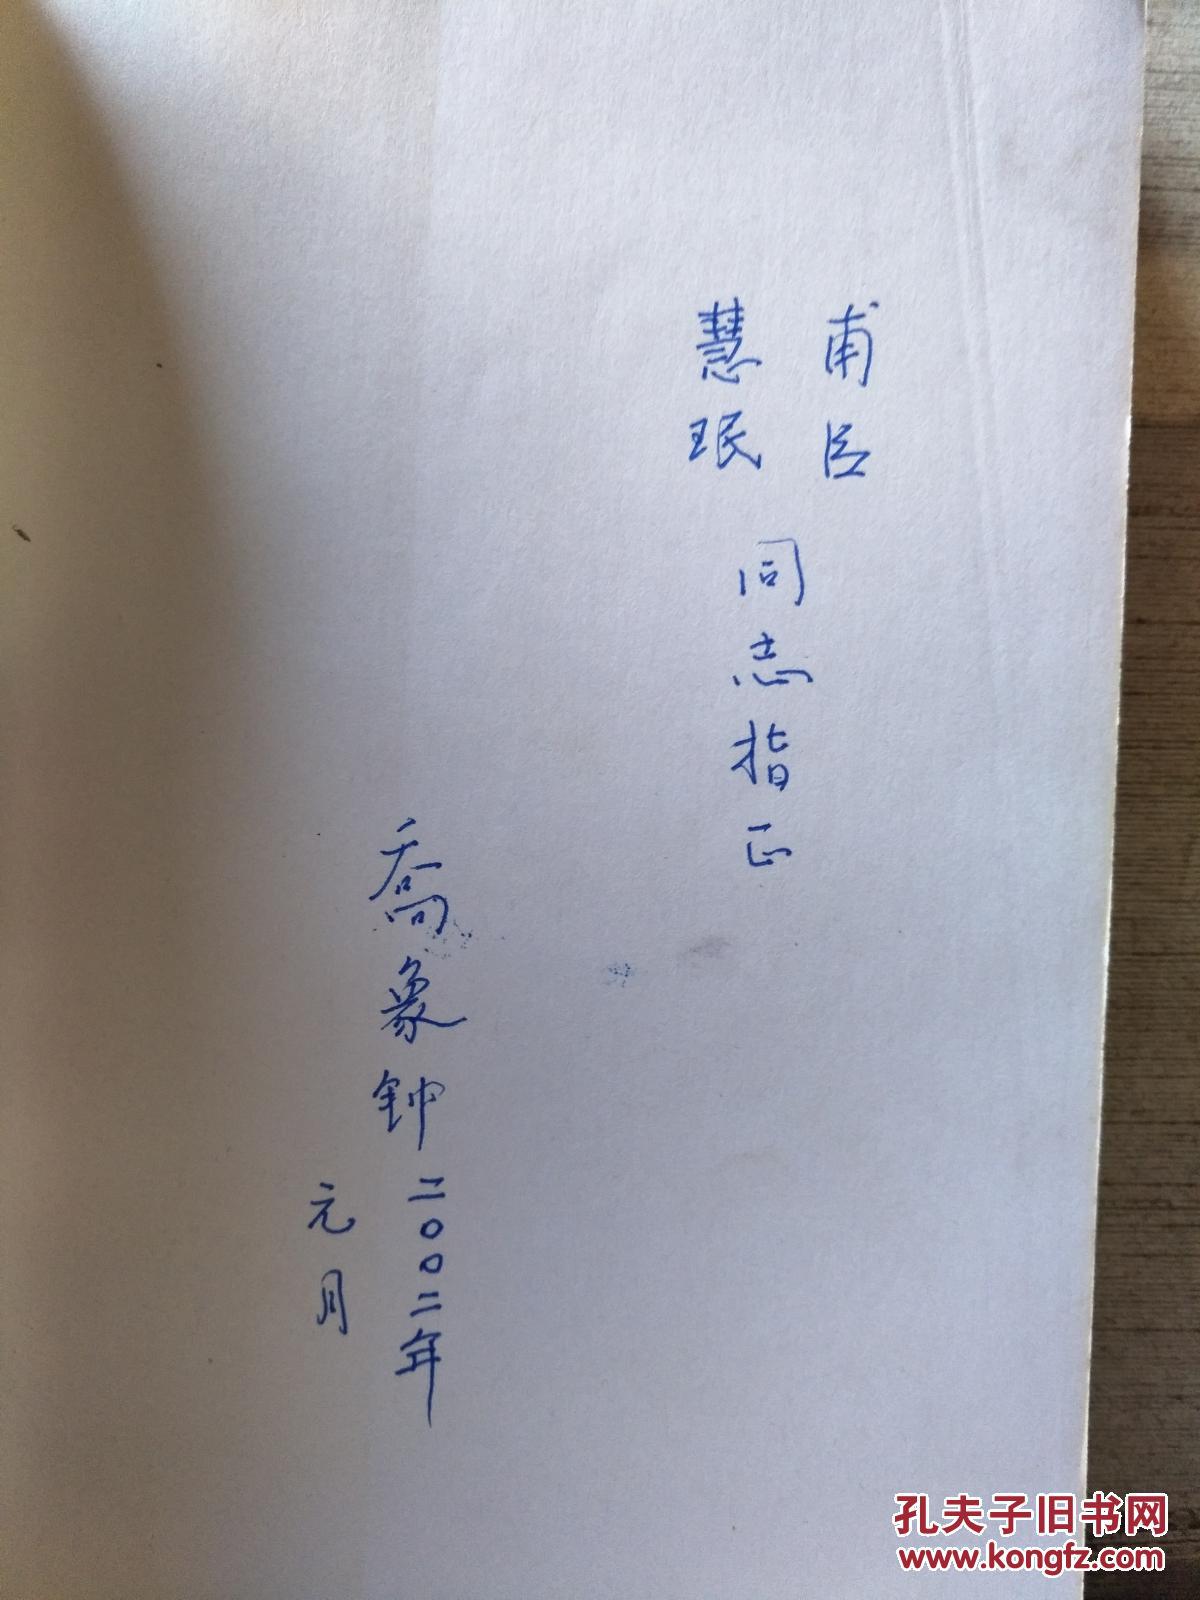 甫臣
慧珉
同志指正
喬象钟二〇〇二年
元月
孔夫子旧书网
www.kongfz.com